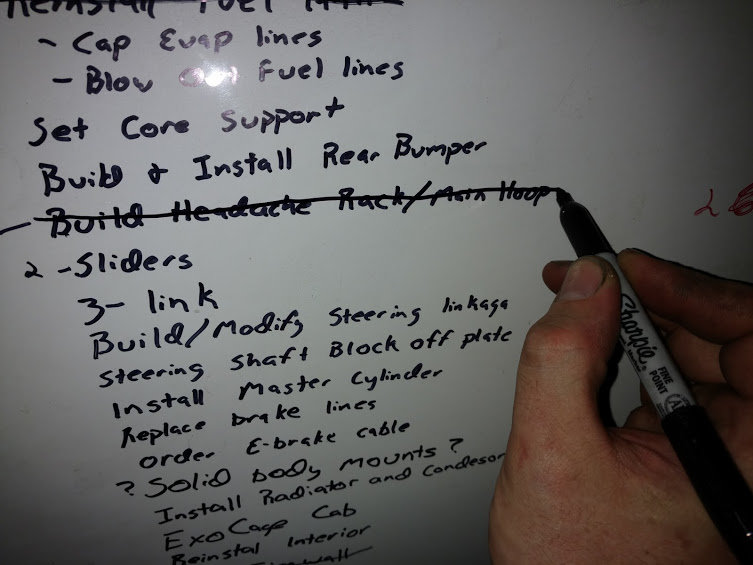 Reinstall Fuel
- Cap Evap lines
- Blow out Fuel lines
Set Core Support
Build & Install Rear Bumper
- Build Headache Rack/Main Hoop
2 - Sliders
3- link
Build/Modify Steering linkaga
Steering Shaft Block off plate
Install Master Cylinder
Replace brake lines
order E-brake cable
? Solid body mounts?
Install Radiator and Condesor
ExoCage Cab
Reinstal Interior
Firewall
2
Sharpie
FINE
POINT